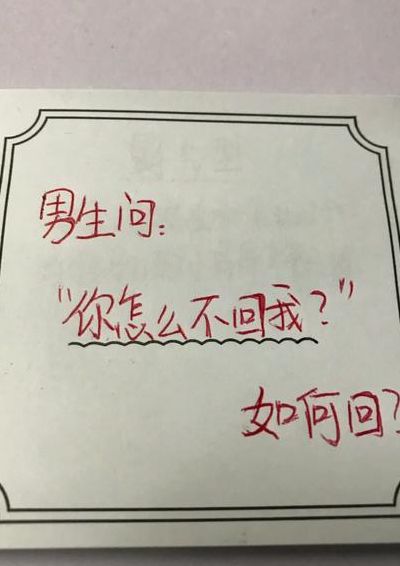 男生问:
"你怎么不回我?"
如何回?